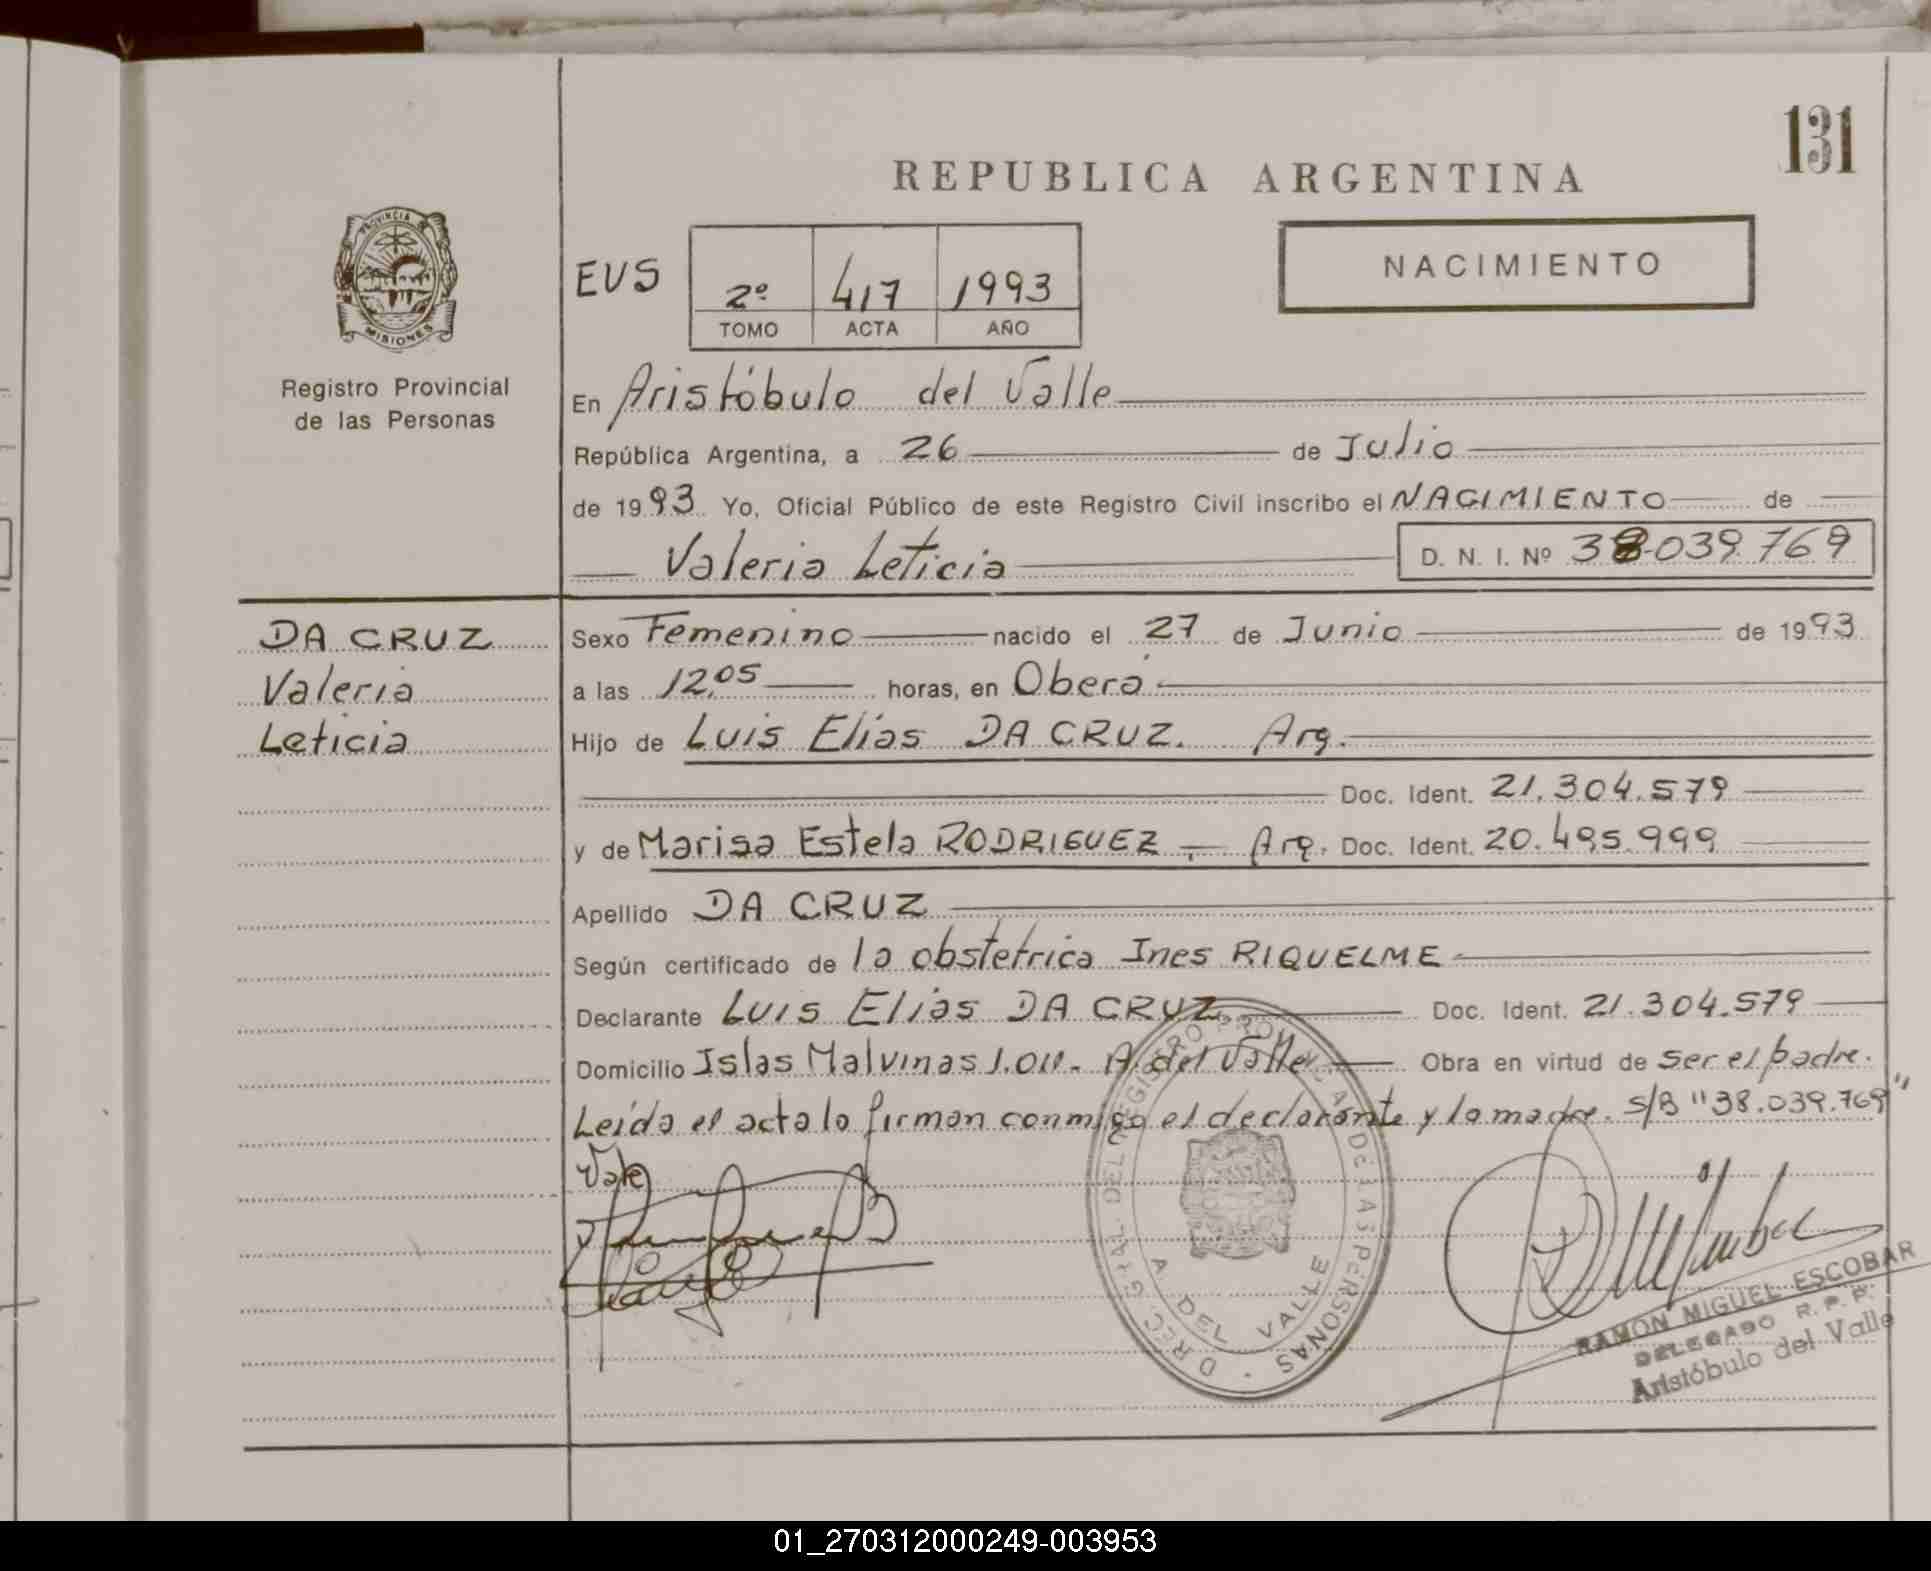 131
REPUBLICA ARGENTINA
PROVINCIA
MISIONES
Registro Provincial
de las Personas
NACIMIENTO
EUS
2º 417 1993
TOMO ACTA AÑO
En Aristóbulo del Valle
República Argentina, a 26 de Julio
de 1993 Yo, Oficial Público de este Registro Civil inscribo el NACIMIENTO de
Valeria Leticia D. N. I. Nº 38.039.769
DA CRUZ
Valeria
Leticia
Sexo Femenino nacido el 27 de Junio de 1993
a las 12,05 horas, en Oberá
Hijo de Luis Elias DA CRUZ. Arg.
Doc. Ident. 21.304.579
y de Marisa Estela RODRIGUEZ - Arg. Doc. Ident. 20.495.999
Apellido DA CRUZ
Según certificado de la obstetrica Ines RIQUELME
Declarante Luis Elias DA CRUZ Doc. Ident. 21.304.579
Domicilio Islas Malvinas 1.011. A. del Valle Obra en virtud de ser el padre.
Leída el acta lo firman conmigo el declarante y la madre. S/B "38.039.769"
Vale
DREC. GRAL. DEL REGISTRO PROVINCIAL DE LAS PERSONAS
A. DEL VALLE
RAMON MIGUEL ESCOBAR
DELEGADO R. P. P.
Aristóbulo del Valle
01_270312000249-003953